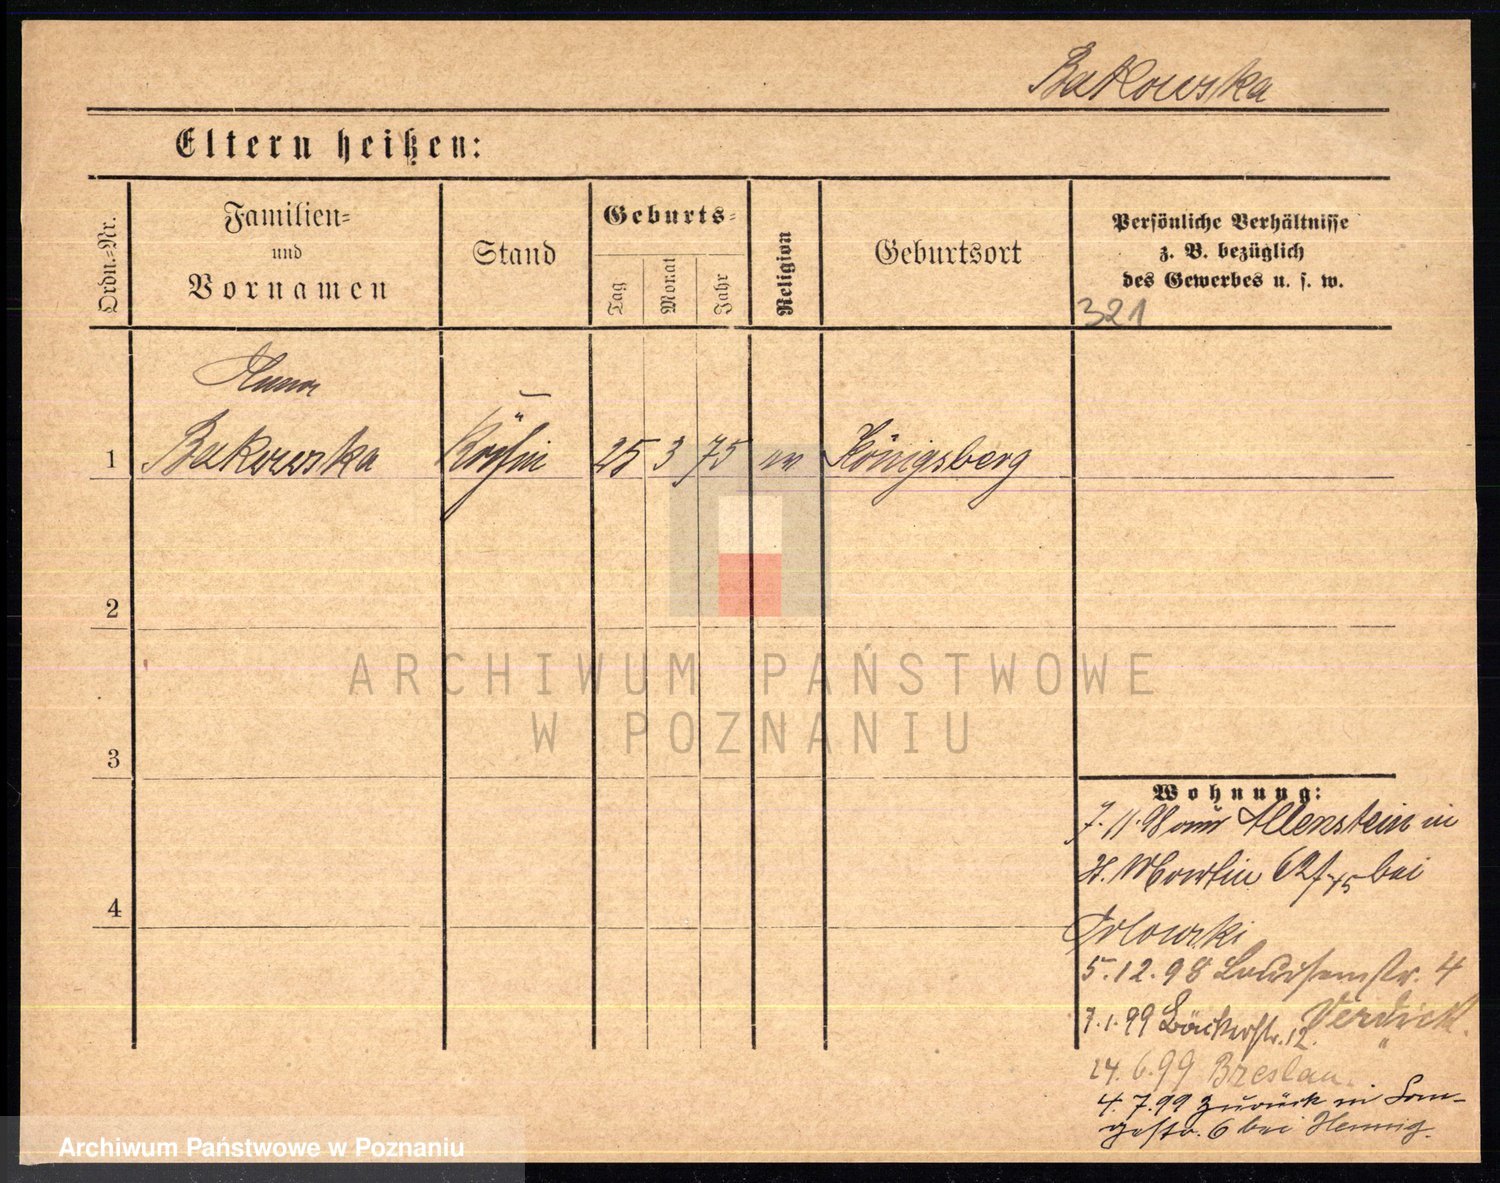 Bakowska
Eltern heißen:
Ordn.-Nr.
Familien-
und
Vornamen
Stand
Geburts-
Tag
Monat
Jahr
Religion
Geburtsort
Persönliche Verhältnisse
z. B. bezüglich
des Gewerbes u. s. w.
321
Anna
1 Bakowska Köchin 25 3 75 ev Königsberg
2
3
4
ARCHIWUM PAŃSTWOWE
W POZNANIU
Wohnung:
7.11.98 aus Allenstein in
St. Martin 62 bei
Orlowski
5.12.98 Louisenstr. 4
7.1.99 Bäckerstr. 12. Verdick.
24.6.99 Breslau.
4.7.99 zurück in
6 bei Hennig.
Archiwum Państwowe w Poznaniu